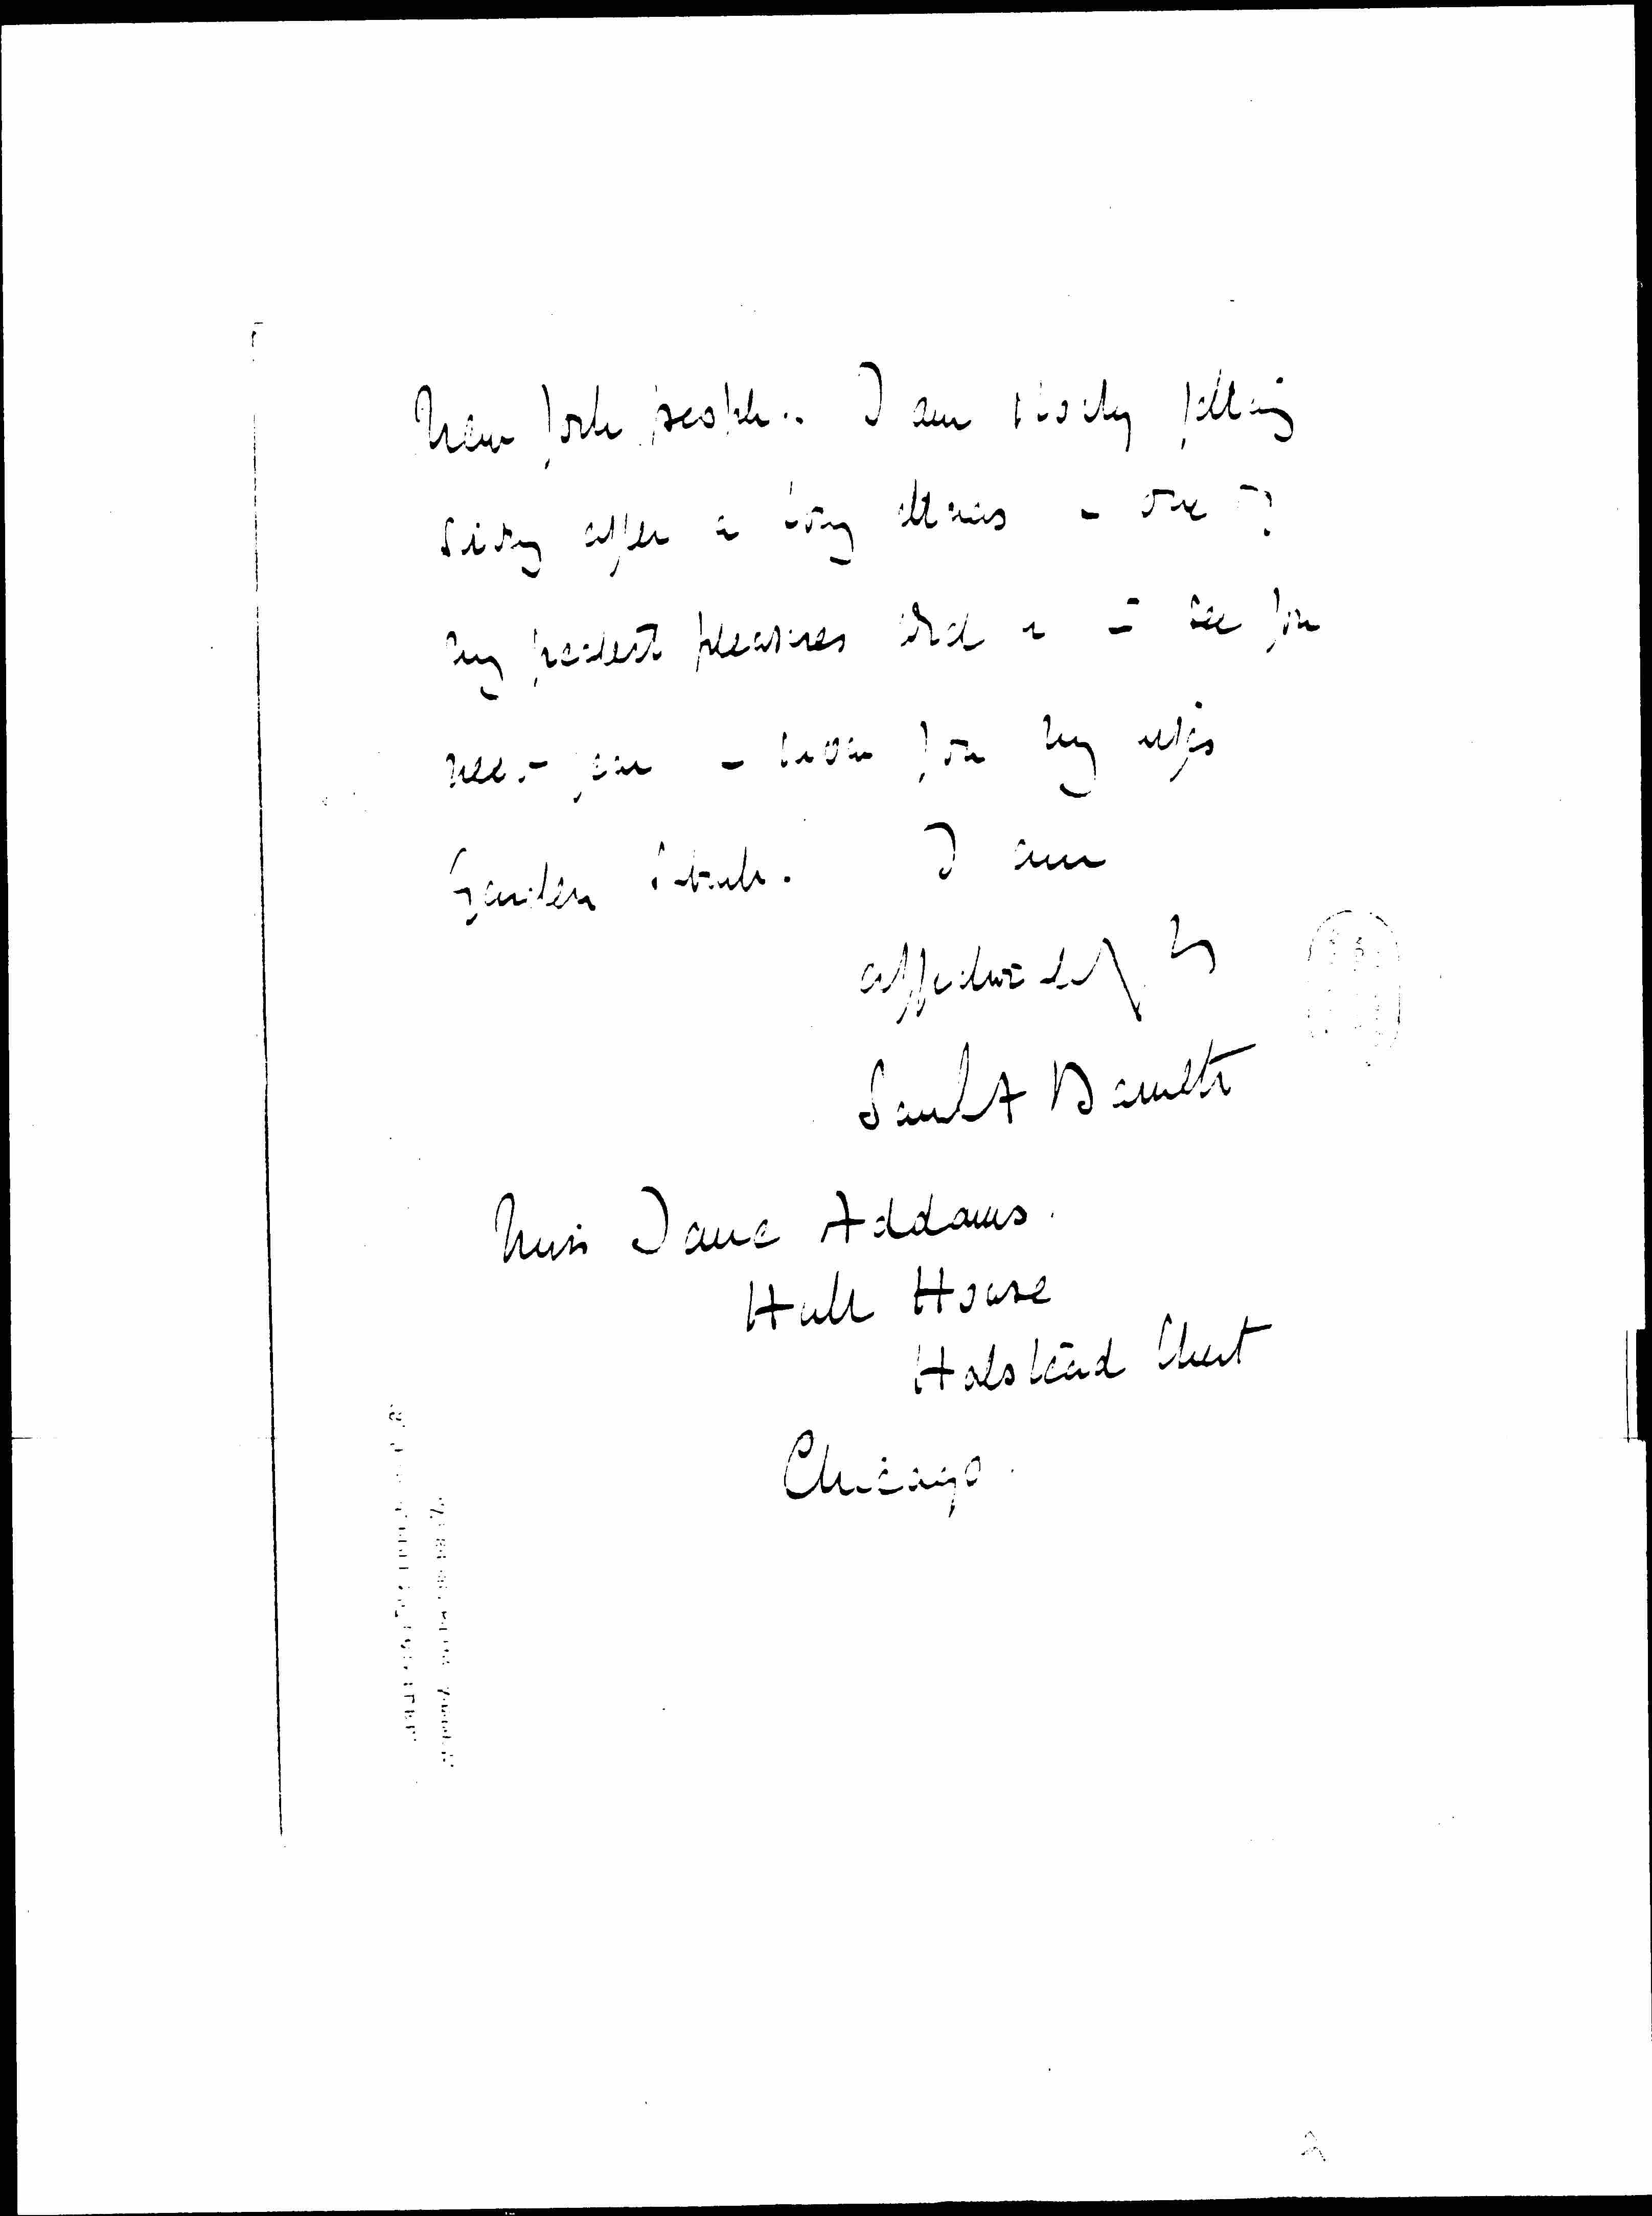 New York people. I am slowly getting
strong after a long illness - one of
my greatest pleasures will be to see you
next year - show you my wife's
Garden Suburb. I am
affectionately yrs
Saml A Barnett
Miss Jane Addams.
Hull House
Halstead Street
Chicago.
2